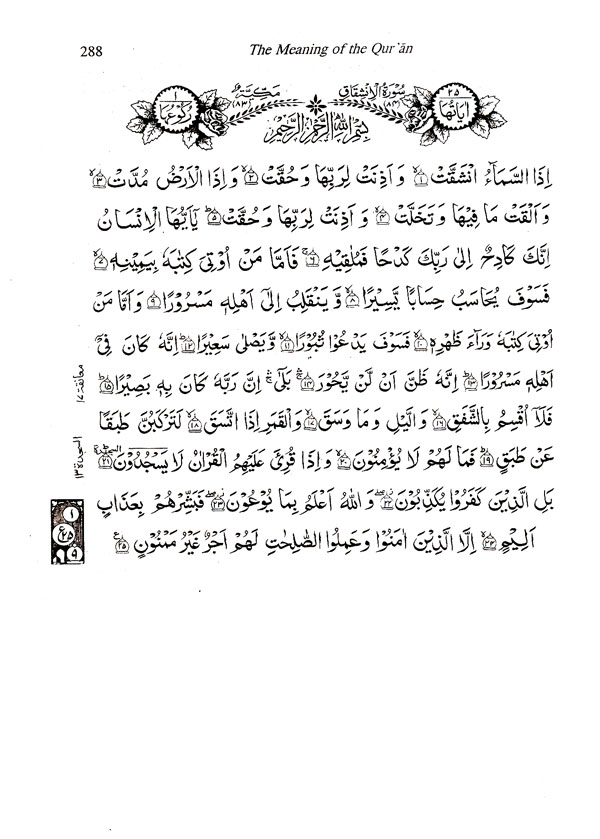 288 The Meaning of the Qur'ān
اٰيَاتُهَا ٢٥ سُوْرَةُ الْاِنْشِقَاقِ (٨٤) مَكِّيَّةٌ (٨٣) رُكُوْعُهَا ١
بِسْمِ اللّٰهِ الرَّحْمٰنِ الرَّحِيْمِ
اِذَا السَّمَآءُ انْشَقَّتْ ۙ﴿١﴾ وَ اَذِنَتْ لِرَبِّهَا وَحُقَّتْ ۙ﴿٢﴾ وَ اِذَا الْاَرْضُ مُدَّتْ ۙ﴿٣﴾
وَ اَلْقَتْ مَا فِيْهَا وَ تَخَلَّتْ ۙ﴿٤﴾ وَ اَذِنَتْ لِرَبِّهَا وَحُقَّتْ ؕ﴿٥﴾ يٰۤاَيُّهَا الْاِنْسَانُ
اِنَّكَ كَادِحٌ اِلٰى رَبِّكَ كَدْحًا فَمُلٰقِيْهِ ۚ﴿٦﴾ فَاَمَّا مَنْ اُوْتِيَ كِتٰبَهٗ بِيَمِيْنِهٖ ۙ﴿٧﴾
فَسَوْفَ يُحَاسَبُ حِسَابًا يَّسِيْرًا ۙ﴿٨﴾ وَّ يَنْقَلِبُ اِلٰۤى اَهْلِهٖ مَسْرُوْرًا ؕ﴿٩﴾ وَ اَمَّا مَنْ
اُوْتِيَ كِتٰبَهٗ وَرَآءَ ظَهْرِهٖ ۙ﴿١٠﴾ فَسَوْفَ يَدْعُوْا ثُبُوْرًا ۙ﴿١١﴾ وَّ يَصْلٰى سَعِيْرًا ؕ﴿١٢﴾ اِنَّهٗ كَانَ فِيْۤ
اَهْلِهٖ مَسْرُوْرًا ؕ﴿١٣﴾ اِنَّهٗ ظَنَّ اَنْ لَّنْ يَّحُوْرَ ۚۛ﴿١٤﴾ بَلٰۤى ۚۛ اِنَّ رَبَّهٗ كَانَ بِهٖ بَصِيْرًا ؕ﴿١٥﴾
معانقة ١٧
فَلَاۤ اُقْسِمُ بِالشَّفَقِ ۙ﴿١٦﴾ وَ الَّيْلِ وَ مَا وَسَقَ ۙ﴿١٧﴾ وَ الْقَمَرِ اِذَا اتَّسَقَ ۙ﴿١٨﴾ لَتَرْكَبُنَّ طَبَقًا
عَنْ طَبَقٍ ؕ﴿١٩﴾ فَمَا لَهُمْ لَا يُؤْمِنُوْنَ ۙ﴿٢٠﴾ وَ اِذَا قُرِئَ عَلَيْهِمُ الْقُرْاٰنُ لَا يَسْجُدُوْنَ ؕ﴿٢١﴾ السجدة
السجدة ١٣
بَلِ الَّذِيْنَ كَفَرُوْا يُكَذِّبُوْنَ ۖ﴿٢٢﴾ وَ اللّٰهُ اَعْلَمُ بِمَا يُوْعُوْنَ ۖ﴿٢٣﴾ فَبَشِّرْهُمْ بِعَذَابٍ
اَلِيْمٍ ۙ﴿٢٤﴾ اِلَّا الَّذِيْنَ اٰمَنُوْا وَ عَمِلُوا الصّٰلِحٰتِ لَهُمْ اَجْرٌ غَيْرُ مَمْنُوْنٍ ﴿٢٥﴾
١
ع ٢٥
٩